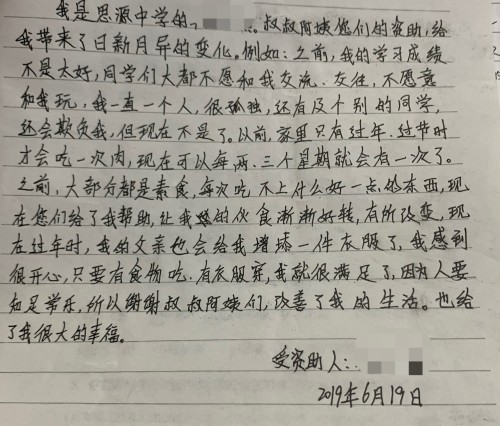 我是思源中学的 叔叔阿姨他们的资助,给
我带来了日新月异的变化。例如:之前,我的学习成绩
不是太好,同学们大都不愿和我交流、友往,不愿意
和我玩,我一直一个人,很孤独,还有及个别的同学,
还会欺负我,但现在不是了。以前,家里只有过年、过节时
才会吃一次肉,现在可以每两、三个星期就会有一次了。
之前,大部分都是素食,每次吃不上什么好一点的东西,现
在您们给了我帮助,让我的伙食渐渐好转,有所改变,现
在过年时,我的父亲也会给我增添一件衣服了,我感到
很开心,只要有食物吃、有衣服穿,我就很满足了,因为人要
知足常乐,所以谢谢叔叔阿姨们,改善了我的生活。也给
了我很大的幸福。
受资助人:
2019年6月19日